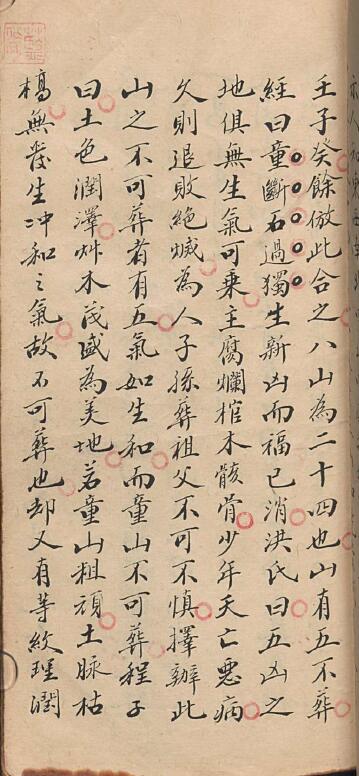 壬子癸餘倣此合之八山為二十四也山有五不葬
經曰童斷石過獨生新凶而福已消洪氏曰五凶之
地俱無生氣可乗主腐爛棺木骸骨少年夭亡惡病
久則退敗絶滅為人子孫葬祖父不可不慎擇辦此
山之不可葬者有五氣如生和而童山不可葬程子
曰土色潤澤艸木茂盛為美地若童山粗頑土脉枯
槁無發生冲和之氣故不可葬也却又有等紋理潤